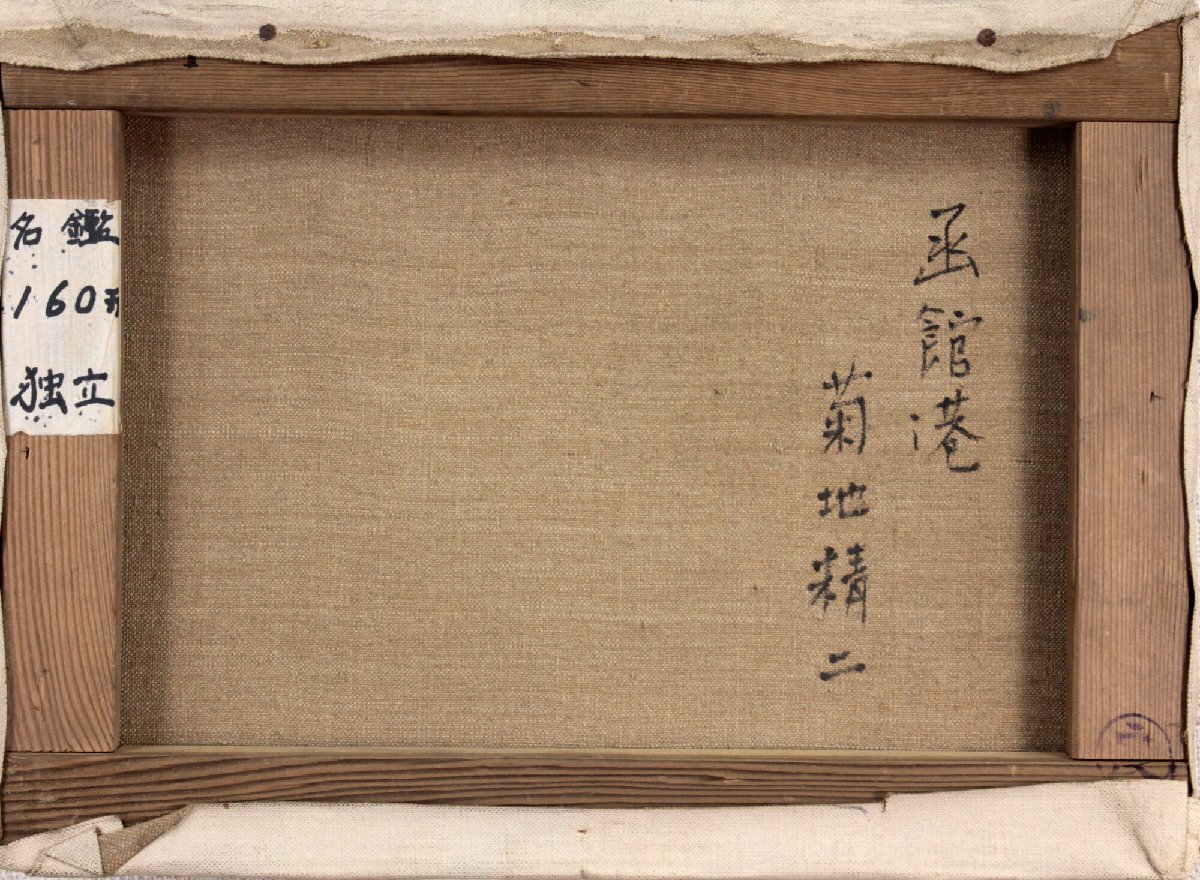 函館港
菊地精二
名鑑
160万
独立